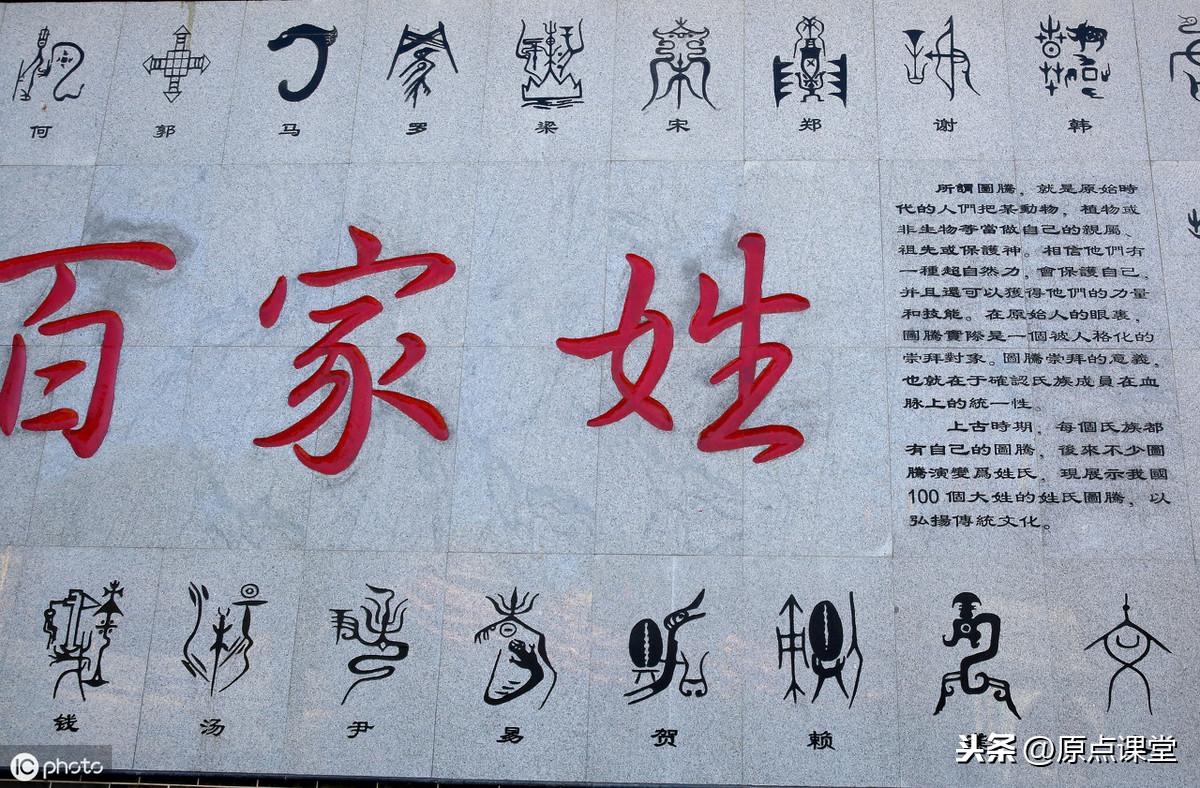 何 郭 马 罗 梁 宋 郑 谢 韩
百家姓
所謂圖騰，就是原始時
代的人們把某動物，植物或
非生物等當做自己的親屬、
祖先或保護神。相信他們有
一種超自然力，會保護自己，
并且還可以獲得他們的力量
和技能。在原始人的眼裏，
圖騰實際是一個被人格化的
崇拜對象。圖騰崇拜的意義，
也就在于確認氏族成員在血
脉上的統一性。
上古時期，每個氏族都
有自己的圖騰，後來不少圖
騰演變爲姓氏，現展示我國
100個大姓的姓氏圖騰，以
弘揚傳統文化。
钱 汤 尹 易 贺 赖
头条 @原点课堂
IC photo